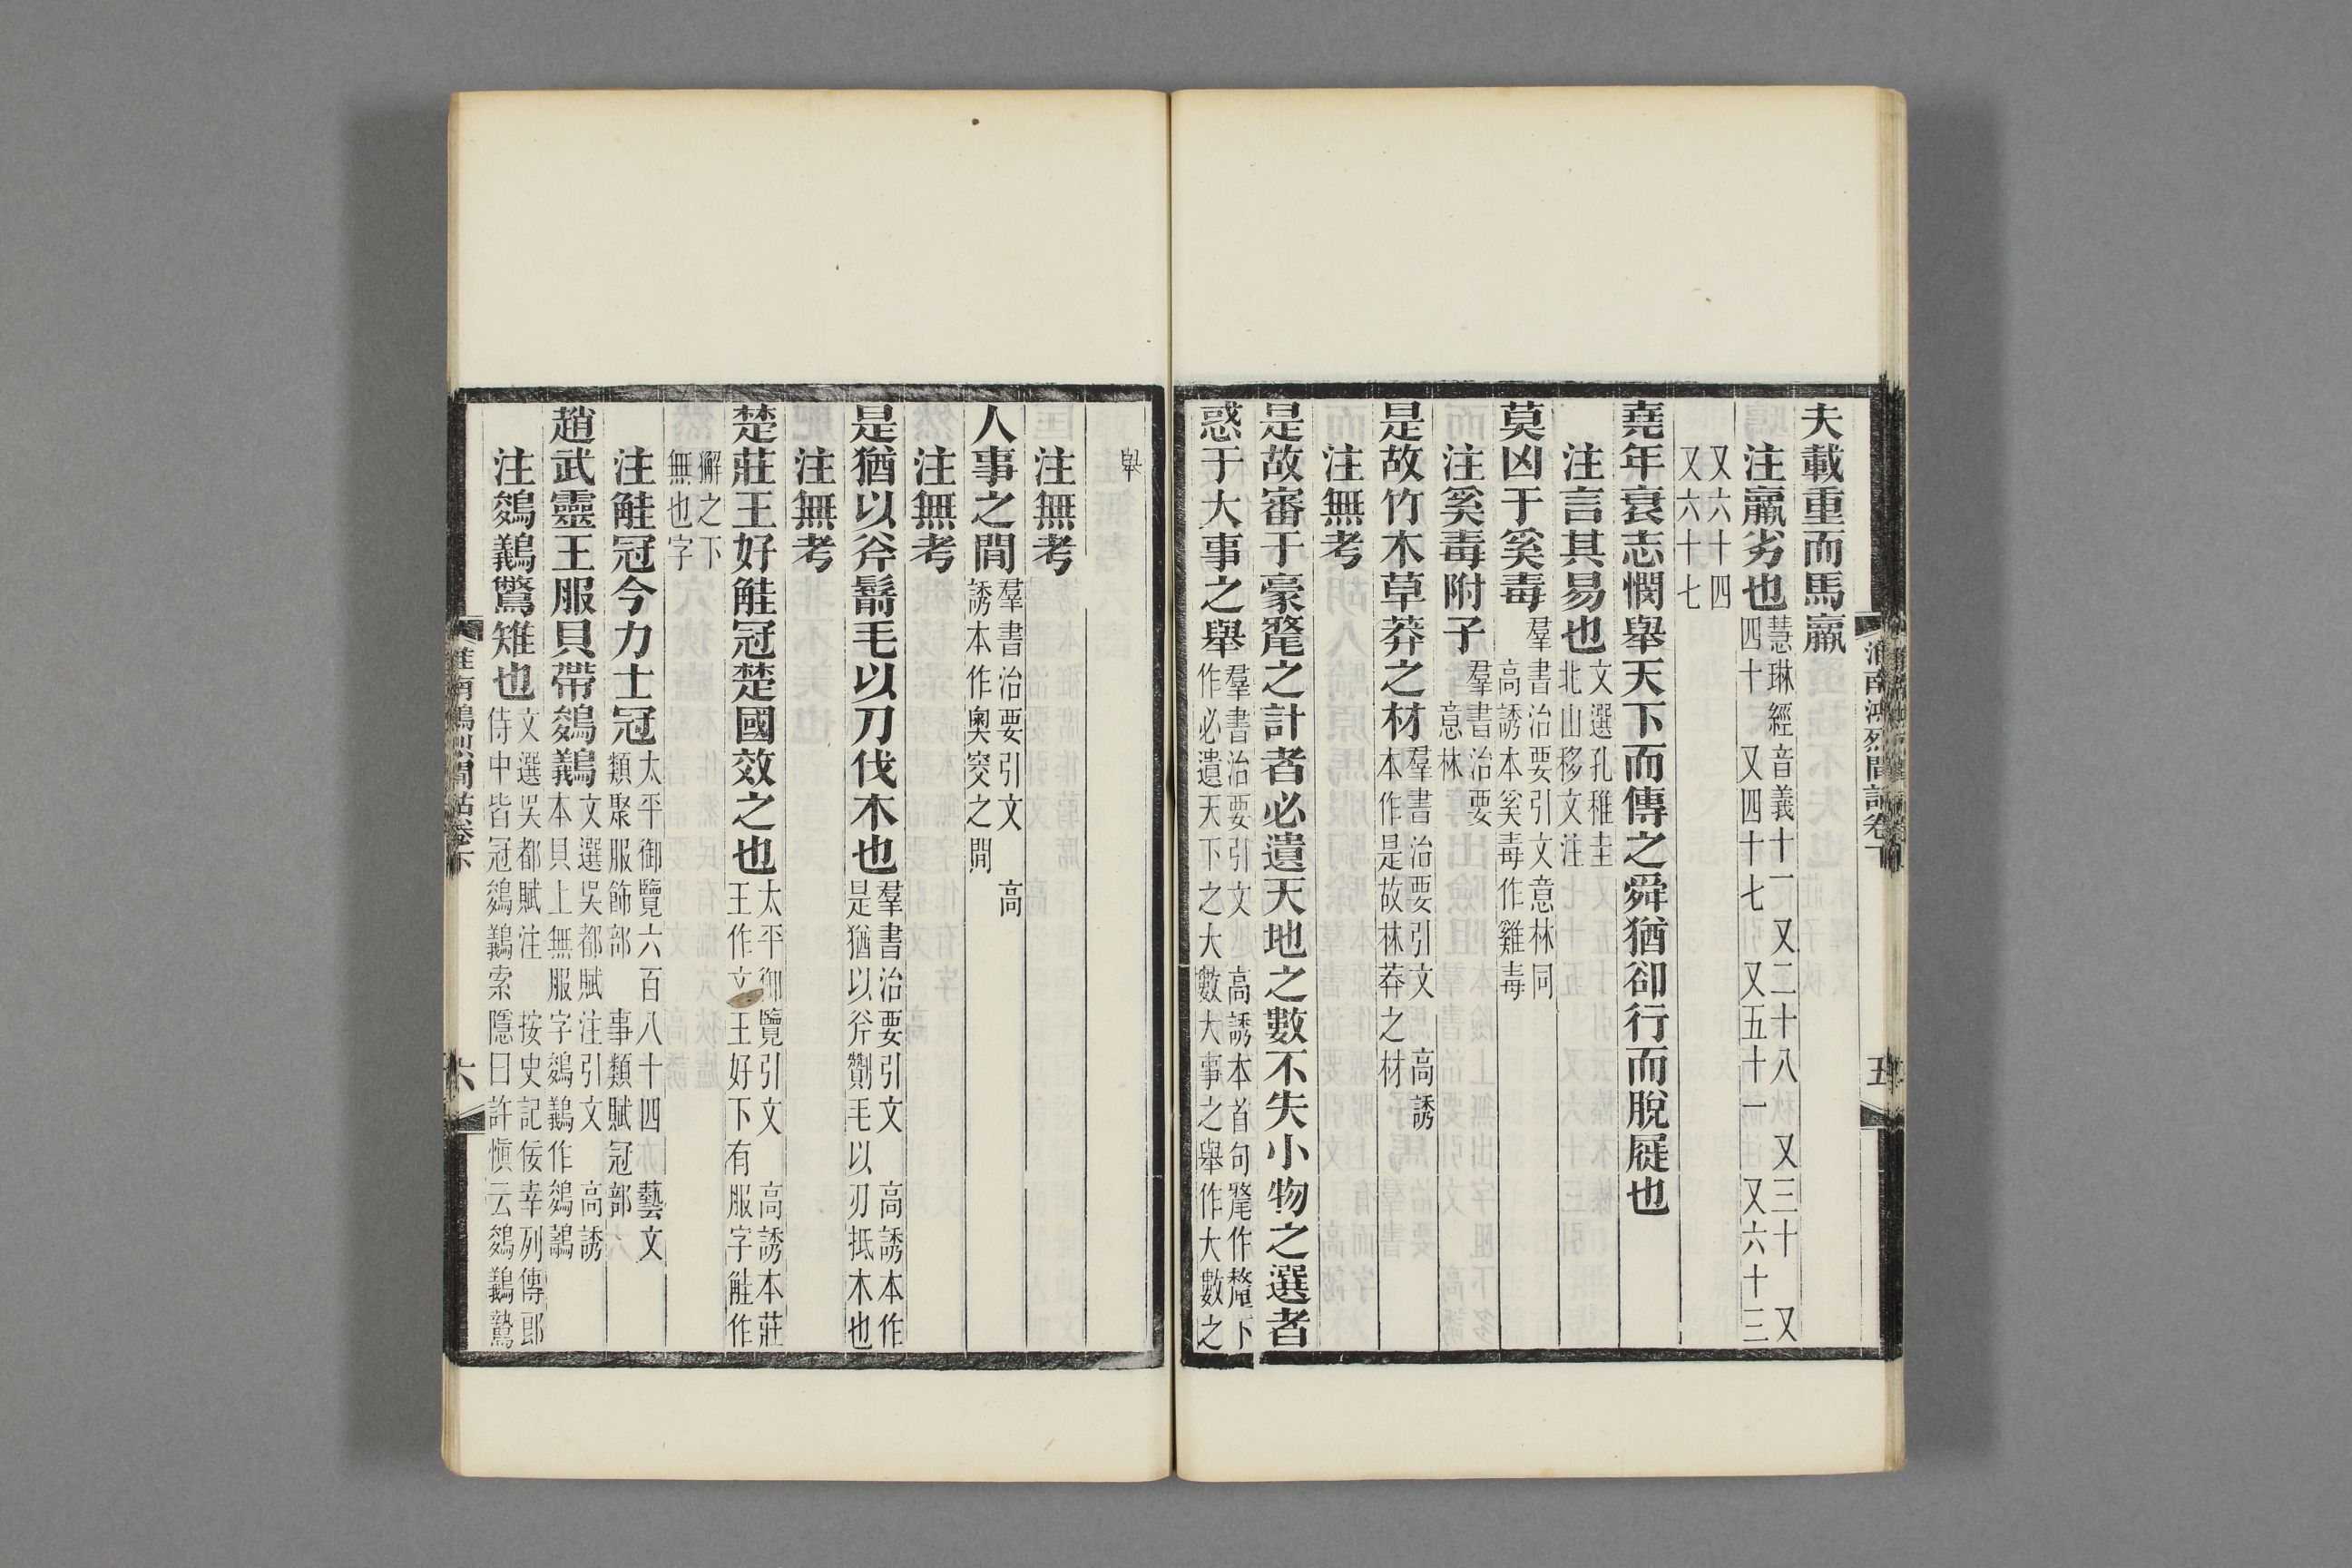 夫載重而馬羸
注羸劣也慧琳經音義十一　又二十八　又三十　又四十　又四十七　又五十一　又六十三
又六十四又六十七
堯年衰志憫舉天下而傳之舜猶卻行而脫屣也
注言其易也文選孔稚圭北山移文注
莫凶于奚毒羣書治要引文意林同高誘本奚毒作雞毒
注奚毒附子羣書治要意林
是故竹木草莽之材羣書治要引文　高誘本作是故林莽之材
注無考
是故審于豪氂之計者必遺天地之數不失小物之選者
惑于大事之舉羣書治要引文　高誘本首句氂作釐下作必遺天下之大數大事之舉作大數之
舉
注無考
人事之閒羣書治要引文　高誘本作奧窔之閒
注無考
是猶以斧鬋毛以刀伐木也羣書治要引文　高誘本作是猶以斧劗毛以刃抵木也
注無考
楚莊王好觟冠楚國效之也太平御覽引文　高誘本莊王作文王好下有服字觟作
獬之下無也字
注觟冠今力士冠太平御覽六百八十四　藝文類聚服飾部　事類賦冠部
趙武靈王服貝帶鵕鸃文選吳都賦注引文　高誘本貝上無服字鵕鸃作鵕鶘
注鵕鸃鷩雉也文選吳都賦注　按史記佞幸列傳郎侍中皆冠鵕鸃索隱曰許慎云鵕鸃鷩
淮南鴻烈閒詁卷下
五
淮南鴻烈閒詁卷下
六